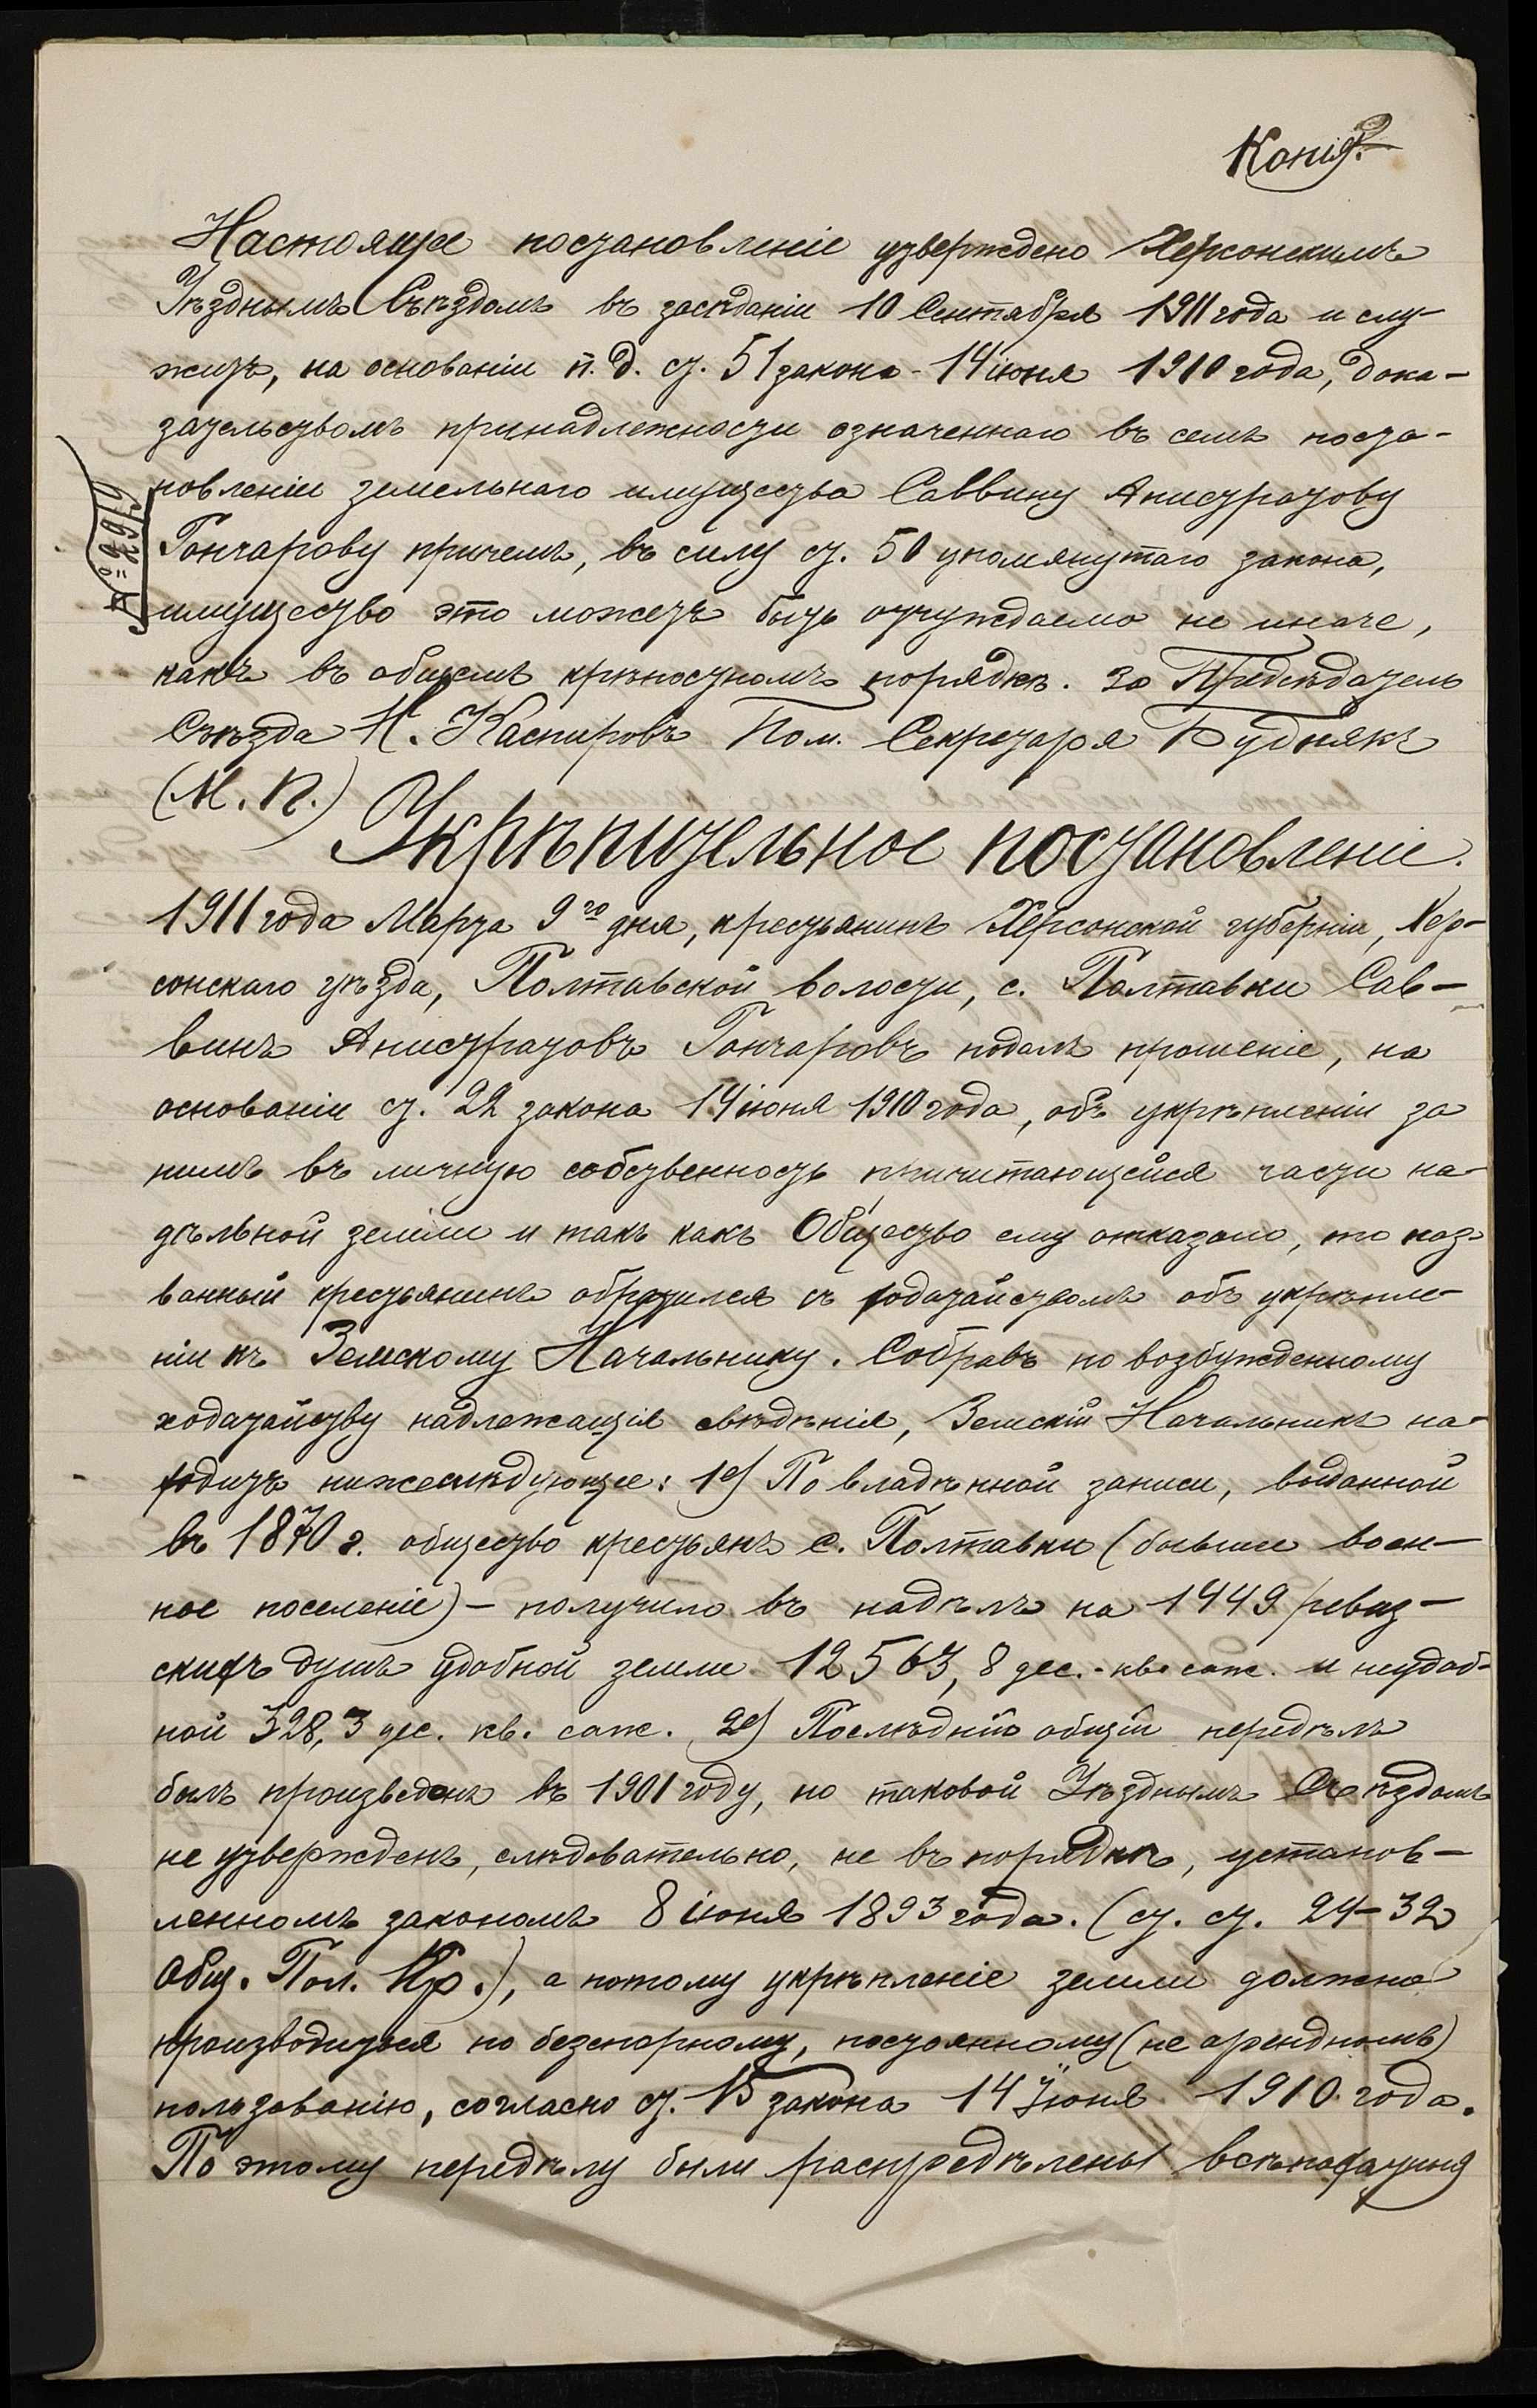 Копія.
Настоящее постановленіе утверждено Херсонскимъ
Уѣзднымъ Съѣздомъ въ засѣданіи 10 Сентября 1911 года и слу-
житъ, на основаніи п. д. ст. 51 закона 14 іюня 1910 года, дока-
зательствомъ принадлежности означеннаго въ семъ поста-
новленіи земельнаго имущества Саввину Анистратову
Гончарову причемъ, въ силу ст. 50 упомянутаго закона,
имущество это можетъ быть отчуждаемо не иначе,
какъ въ общемъ крѣпостномъ порядкѣ. За Предсѣдатель
Съѣзда Н. Каспировъ Пом. Секретаря Будникъ
(М. П.)
Укрѣпительное постановленіе.
1911 года Марта 9го дня, крестьянинъ Херсонской губерніи, Хер-
сонскаго уѣзда, Полтавской волости, с. Полтавки Сав-
винъ Анистратовъ Гончаровъ подалъ прошеніе, на
основаніи ст. 22 закона 14 іюня 1910 года, объ укрѣпленіи за
нимъ въ личную собственность причитающейся части на-
дѣльной земли и такъ какъ Общество ему отказало, то наз-
ванный крестьянинъ обратился съ ходатайствомъ объ укрѣпле-
ніи къ Земскому Начальнику. Собравъ по возбужденному
ходатайству надлежащія свѣдѣнія, Земскій Начальникъ на-
ходитъ нижеслѣдующее: 1е) По владѣнной записи, выданной
въ 1870 г. общество крестьянъ с. Полтавки (бывшее воен-
ное поселеніе) – получило въ надѣлъ на 1449 ревиз-
скихъ душъ удобной земли 12563,8 дес. кв. саж. и неудоб-
ной 328,3 дес. кв. саж. 2е) Послѣдній общій передѣлъ
былъ произведенъ въ 1901 году, но таковой Уѣзднымъ Съѣздомъ
не утвержденъ, слѣдовательно, не въ порядкѣ, установ-
ленномъ закономъ 8 іюня 1893 года. (ст. ст. 24–32
Общ. Пол. Кр.), а потому укрѣпленіе земли должно
производиться по безспорному, постоянному (не арендномъ)
пользованію, согласно ст. 15 закона 14 Іюня 1910 года.
По этому передѣлу были распредѣлены всѣ пахатныя